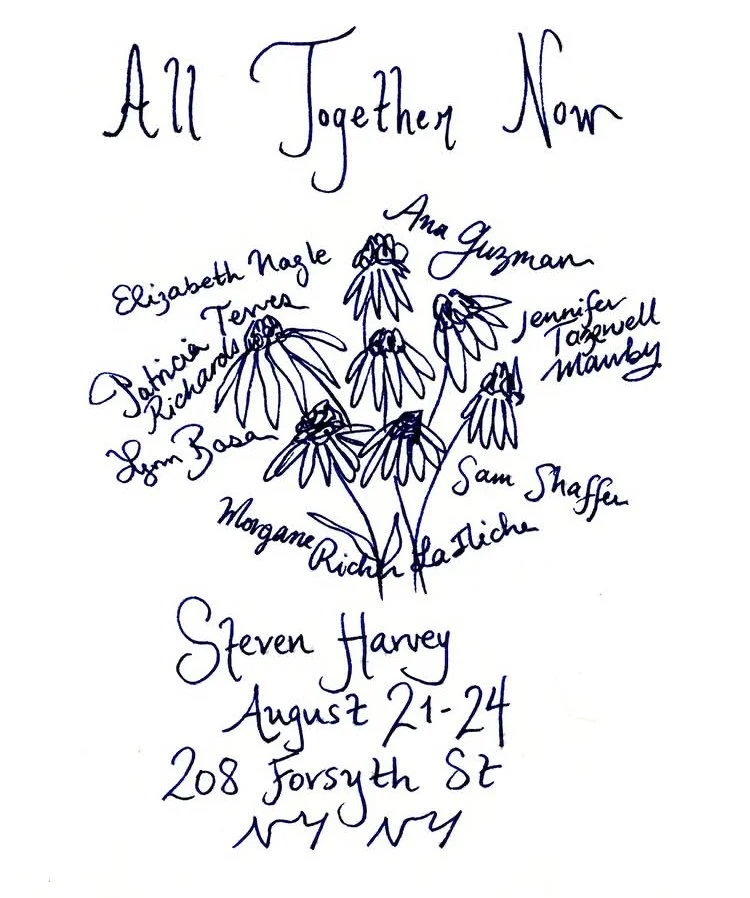 All Together Now
Ana Guzman
Elizabeth Nagle
Terres
Jennifer
Tazewell
Mawby
Patricia
Richards
Lynn Basa
Sam Shaffer
Morgane
Richer LaFliche
Steven Harvey
August 21-24
208 Forsyth St
NY NY